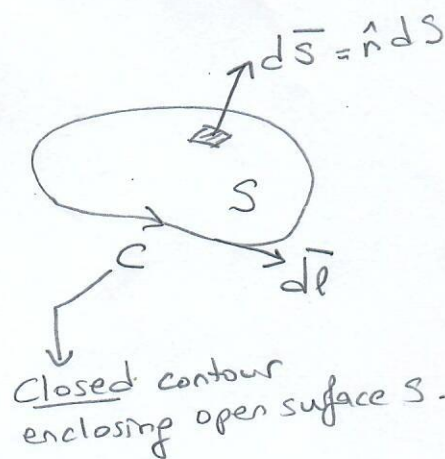 dS̅ = n̂ dS
S
C
dl̅
Closed contour
enclosing open suface S.